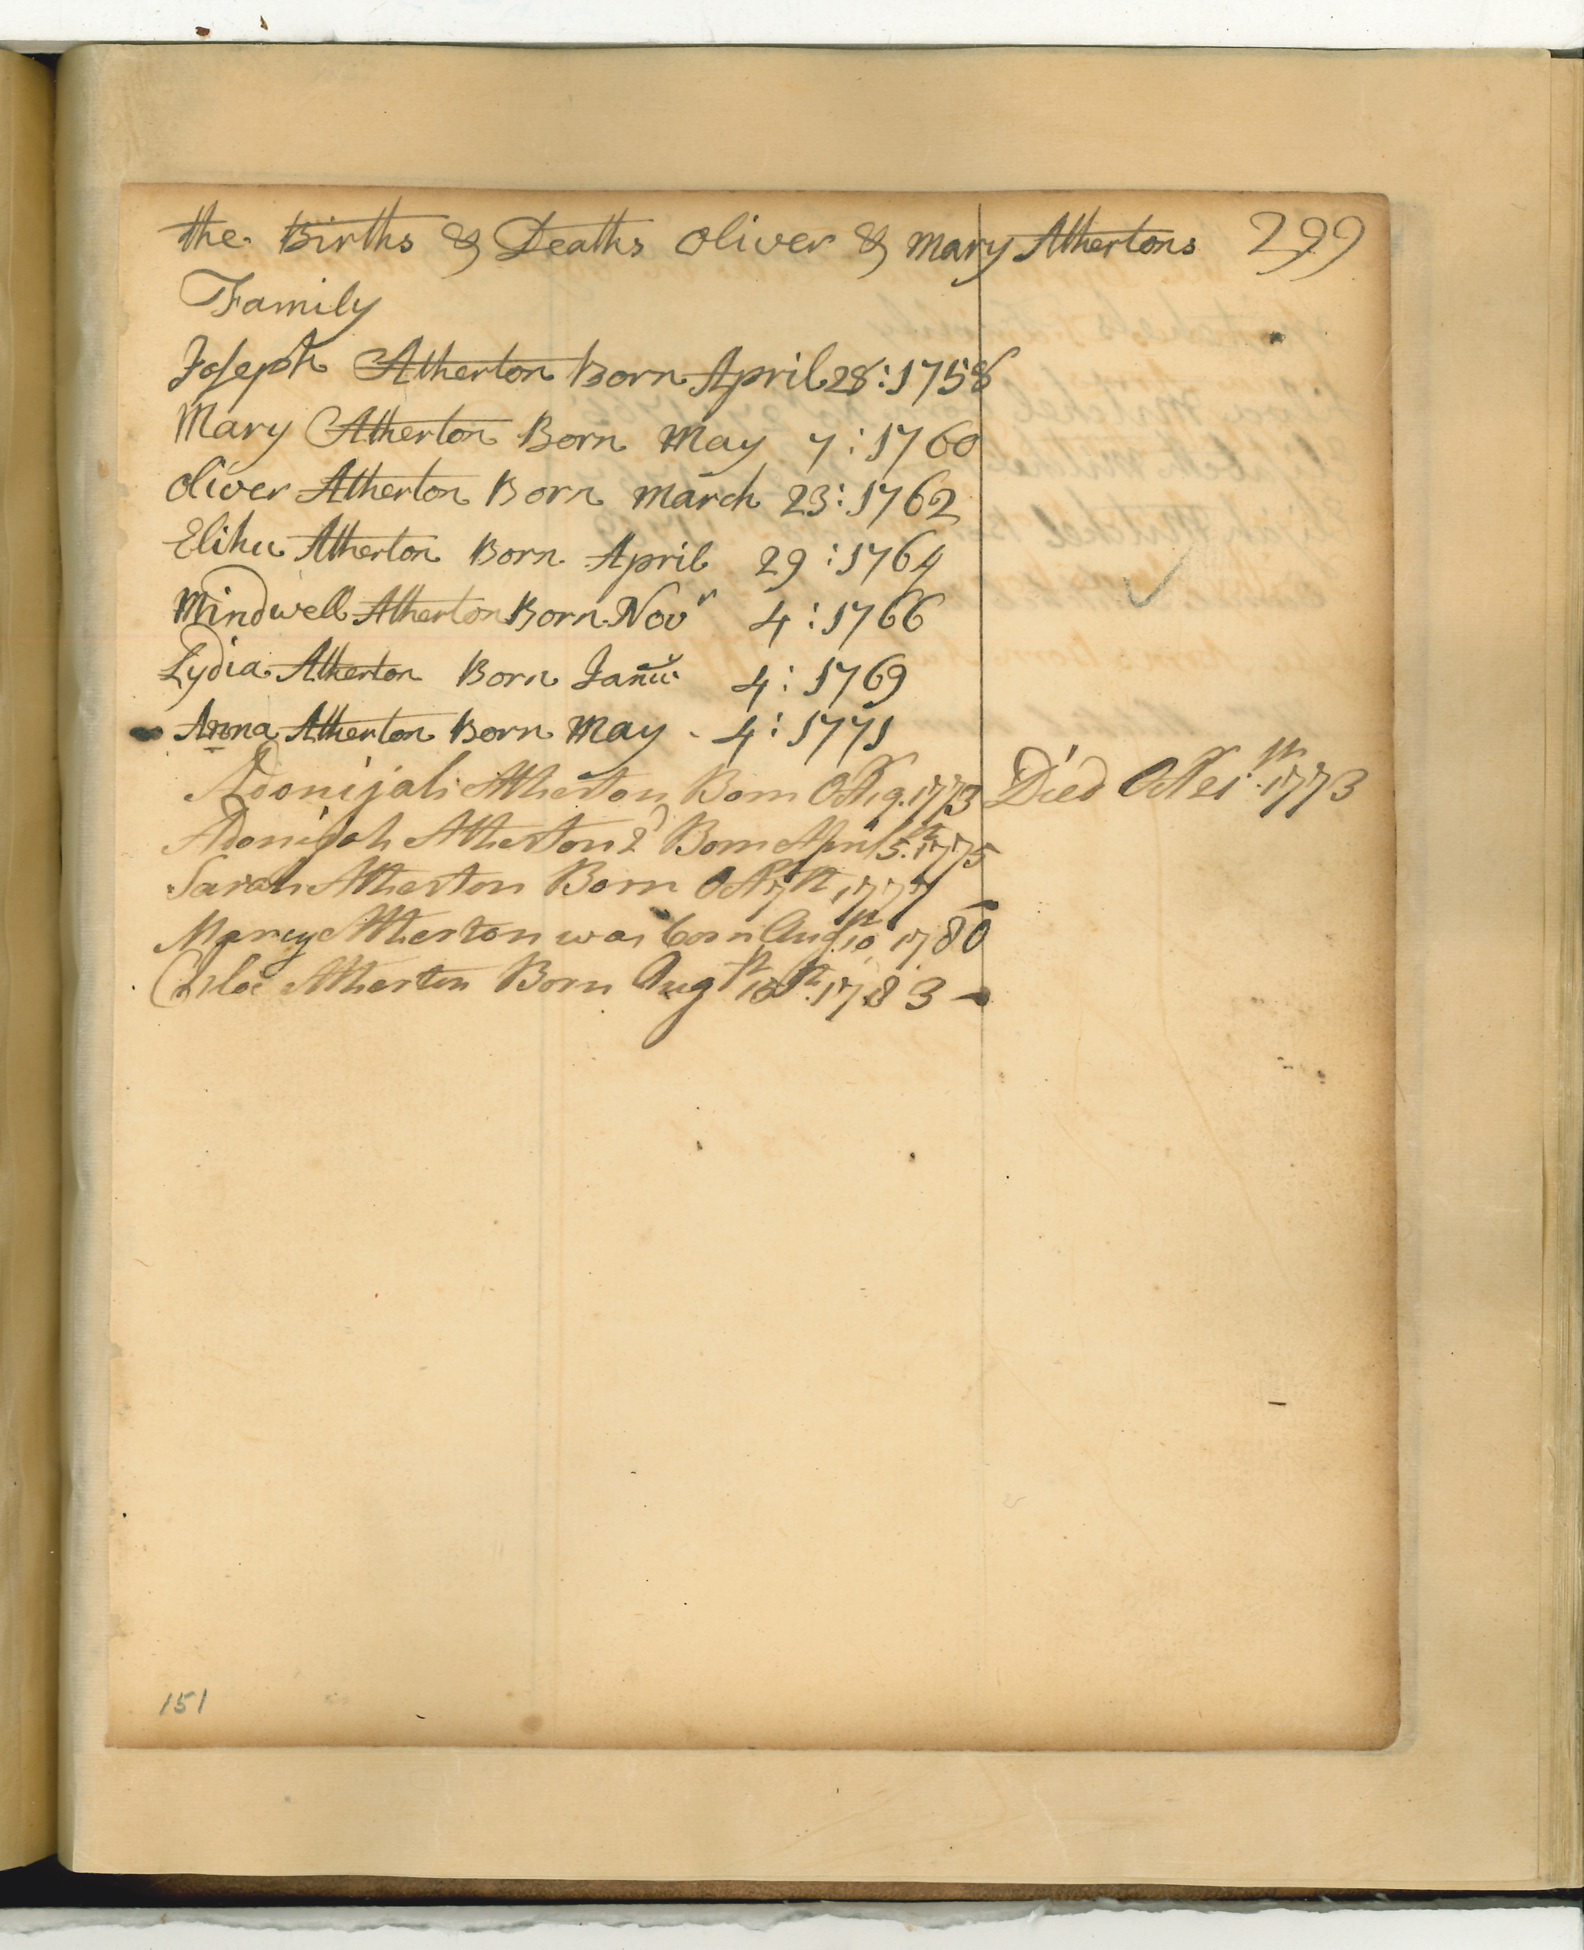 the Births & Deaths Oliver & Mary Athertons 299
Family
Joseph Atherton Born April 28:1758
Mary Atherton Born May 7:1760
Oliver Atherton Born march 23:1762
Elihu Atherton Born April 29:1764
Mindwell Atherton Born Novr 4:1766
Lydia Atherton Born Janu 4:1769
Anna Atherton Born May 4:1771
Adonijah Atherton Born Oct 19.1773 Died Oct 21st.1773
Adonijah Atherton 2d Born April 5th.1775
Sarah Atherton Born Oct 7th 1777
Marcy Atherton was born Aug 10th 1780
Chloe Atherton Born Augt 1783
151